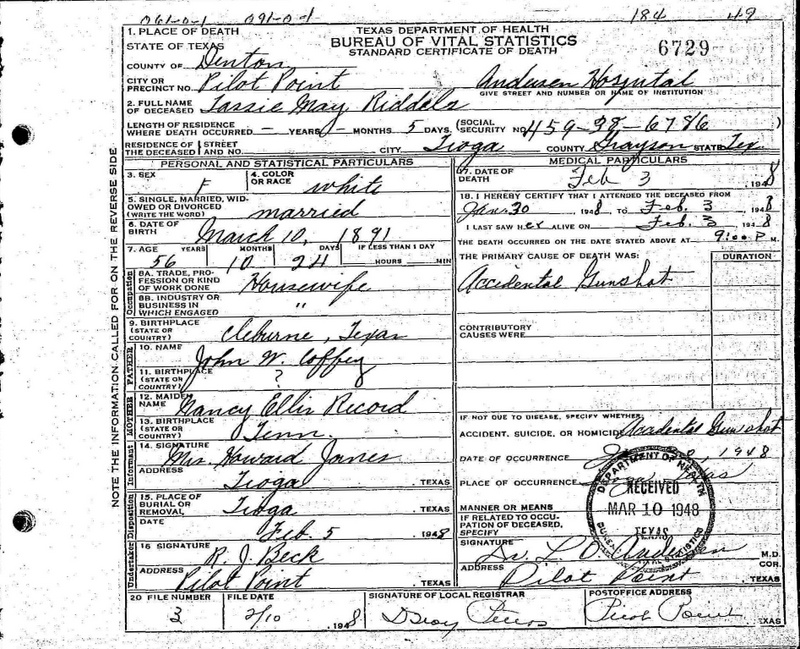 061-0-1 091-0-1 184 49
1. PLACE OF DEATH
STATE OF TEXAS
TEXAS DEPARTMENT OF HEALTH
BUREAU OF VITAL STATISTICS
STANDARD CERTIFICATE OF DEATH
6729
COUNTY OF Denton
CITY OR PRECINCT NO. Pilot Point
Andersen Hospital
GIVE STREET AND NUMBER OR NAME OF INSTITUTION
2. FULL NAME OF DECEASED Tassie May Riddels
LENGTH OF RESIDENCE WHERE DEATH OCCURRED – YEARS – MONTHS 5 DAYS. (SOCIAL SECURITY NO. 459-38-6786
RESIDENCE OF THE DECEASED { STREET AND NO. CITY Tioga COUNTY Grayson STATE Tex
NOTE THE INFORMATION CALLED FOR ON THE REVERSE SIDE
PERSONAL AND STATISTICAL PARTICULARS
3. SEX F 4. COLOR OR RACE white
5. SINGLE, MARRIED, WIDOWED OR DIVORCED (WRITE THE WORD) married
6. DATE OF BIRTH March 10, 1891
7. AGE YEARS MONTHS DAYS IF LESS THAN 1 DAY
56 10 24 HOURS MIN
Occupation
8A. TRADE, PROFESSION OR KIND OF WORK DONE Housewife
8B. INDUSTRY OR BUSINESS IN WHICH ENGAGED "
9. BIRTHPLACE (STATE OR COUNTRY) Cleburne, Texas
FATHER
10. NAME John W. Coffey
11. BIRTHPLACE (STATE OR COUNTRY) ?
MOTHER
12. MAIDEN NAME Nancy Ellis Record
13. BIRTHPLACE (STATE OR COUNTRY) Tenn.
Informant
14. SIGNATURE Mrs. Howard Jones
ADDRESS Tioga TEXAS
Disposition
15. PLACE OF BURIAL OR REMOVAL, Tioga TEXAS
DATE Feb. 5 1948
Undertaker
16 SIGNATURE R. J. Beck
ADDRESS Pilot Point, TEXAS
MEDICAL PARTICULARS
17. DATE OF DEATH Feb 3 1948
18. I HEREBY CERTIFY THAT I ATTENDED THE DECEASED FROM
Jan. 30 1948, TO Feb. 3 1948
I LAST SAW Her ALIVE ON Feb. 3 1948
THE DEATH OCCURRED ON THE DATE STATED ABOVE AT 9:00 P M.
THE PRIMARY CAUSE OF DEATH WAS: DURATION
Accidental Gunshot
CONTRIBUTORY CAUSES WERE:
IF NOT DUE TO DISEASE, SPECIFY WHETHER:
ACCIDENT, SUICIDE, OR HOMICIDE Accidental Gunshot
DATE OF OCCURRENCE , 1948
PLACE OF OCCURRENCE
MANNER OR MEANS
IF RELATED TO OCCUPATION OF DECEASED, SPECIFY
SIGNATURE Dr. L. D. Andersen M.D. COR.
ADDRESS Pilot Point, TEXAS
DEPARTMENT OF HEALTH
RECEIVED
MAR 10 1948
TEXAS
BUREAU STATISTICS
20 FILE NUMBER FILE DATE SIGNATURE OF LOCAL REGISTRAR POSTOFFICE ADDRESS
3 2/10 1948 Pilot Point TEXAS